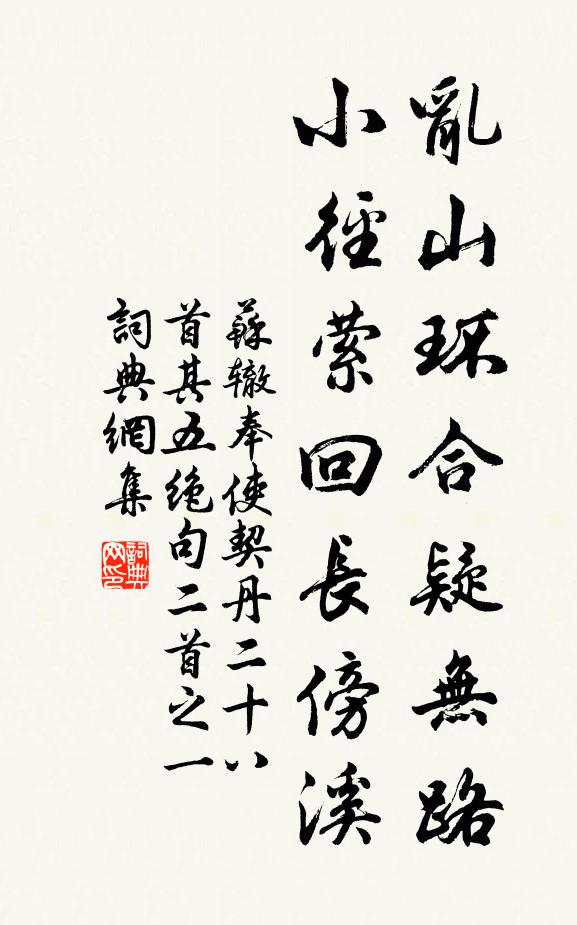 亂山環合疑無路
小徑縈回長傍溪
蘇轍奉使契丹二十八
首其五绝句二首之一
詞典網集
詞典网印